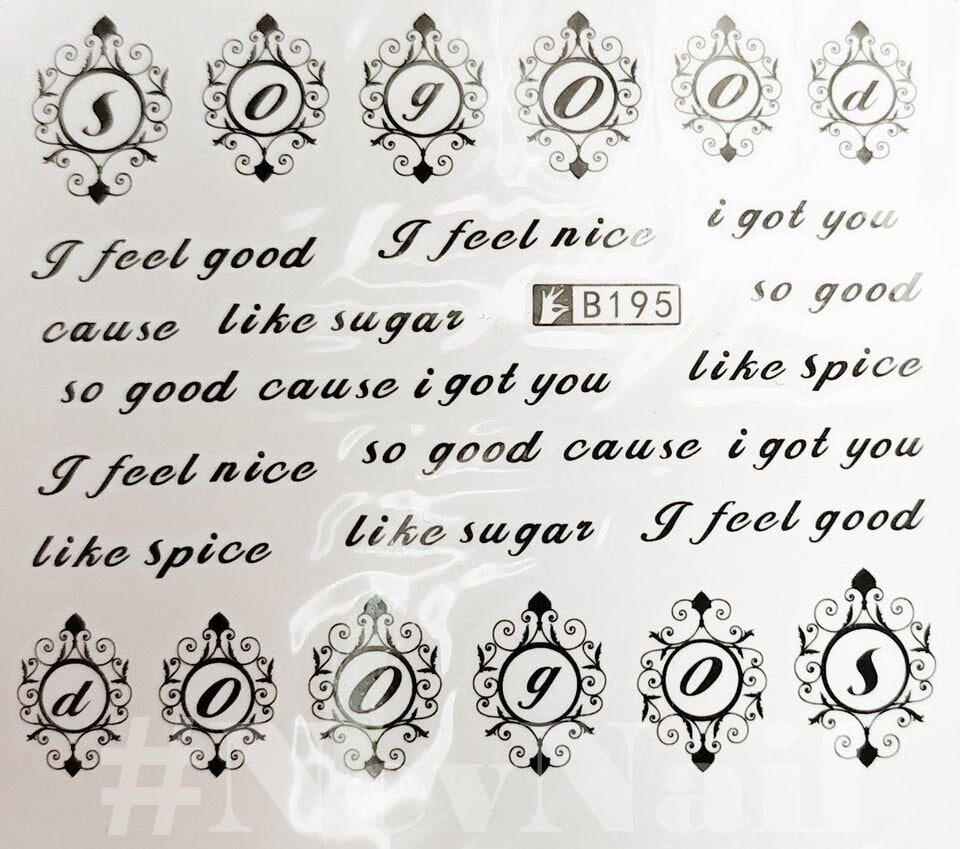 S o g o o d
I feel good I feel nice i got you
cause like sugar B195 so good
so good cause i got you like spice
I feel nice so good cause i got you
like spice like sugar I feel good
d o o g o s
#NevNail